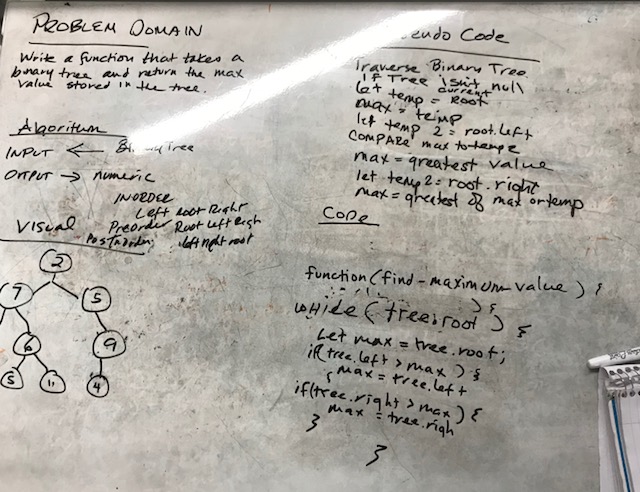 PROBLEM DOMAIN
Write a function that takes a
binary tree and return the max
value stored in the tree.
Algoritum
INPUT ← Tree
OTPUT → numeric
INORDER
Left root Right
Preorder Root Left Righ
left right root
VISUAL
2
7 5
6 9
5 11 4
Code
Traverse Binary Tree
If Tree isnt null
current
let temp = Root
max = temp
let temp 2 = root.left
COMPARE max to
max = greatest value
let temp2 = root.right
max = greatest of max or temp
Code
function (find-maximum-value) {
) {
while (tree.root) {
Let max = tree.root;
if(tree.left > max) {
max = tree.left
if(tree.right > max) {
max = tree.righ
}
}